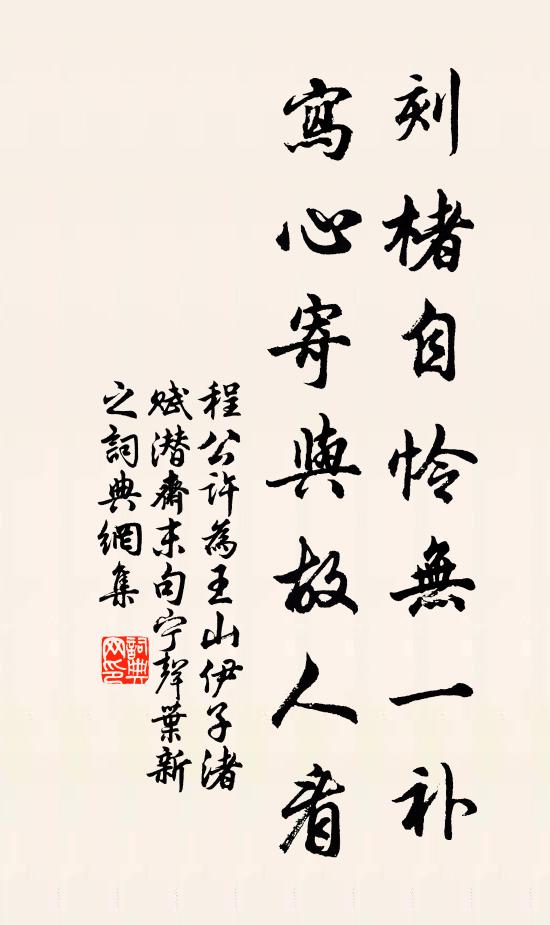 刻楮自怜無一补
寫心寄與故人看
程公许為王山伊子渚
赋潜齋末句宁聲葉新
之詞典網集
詞典网印